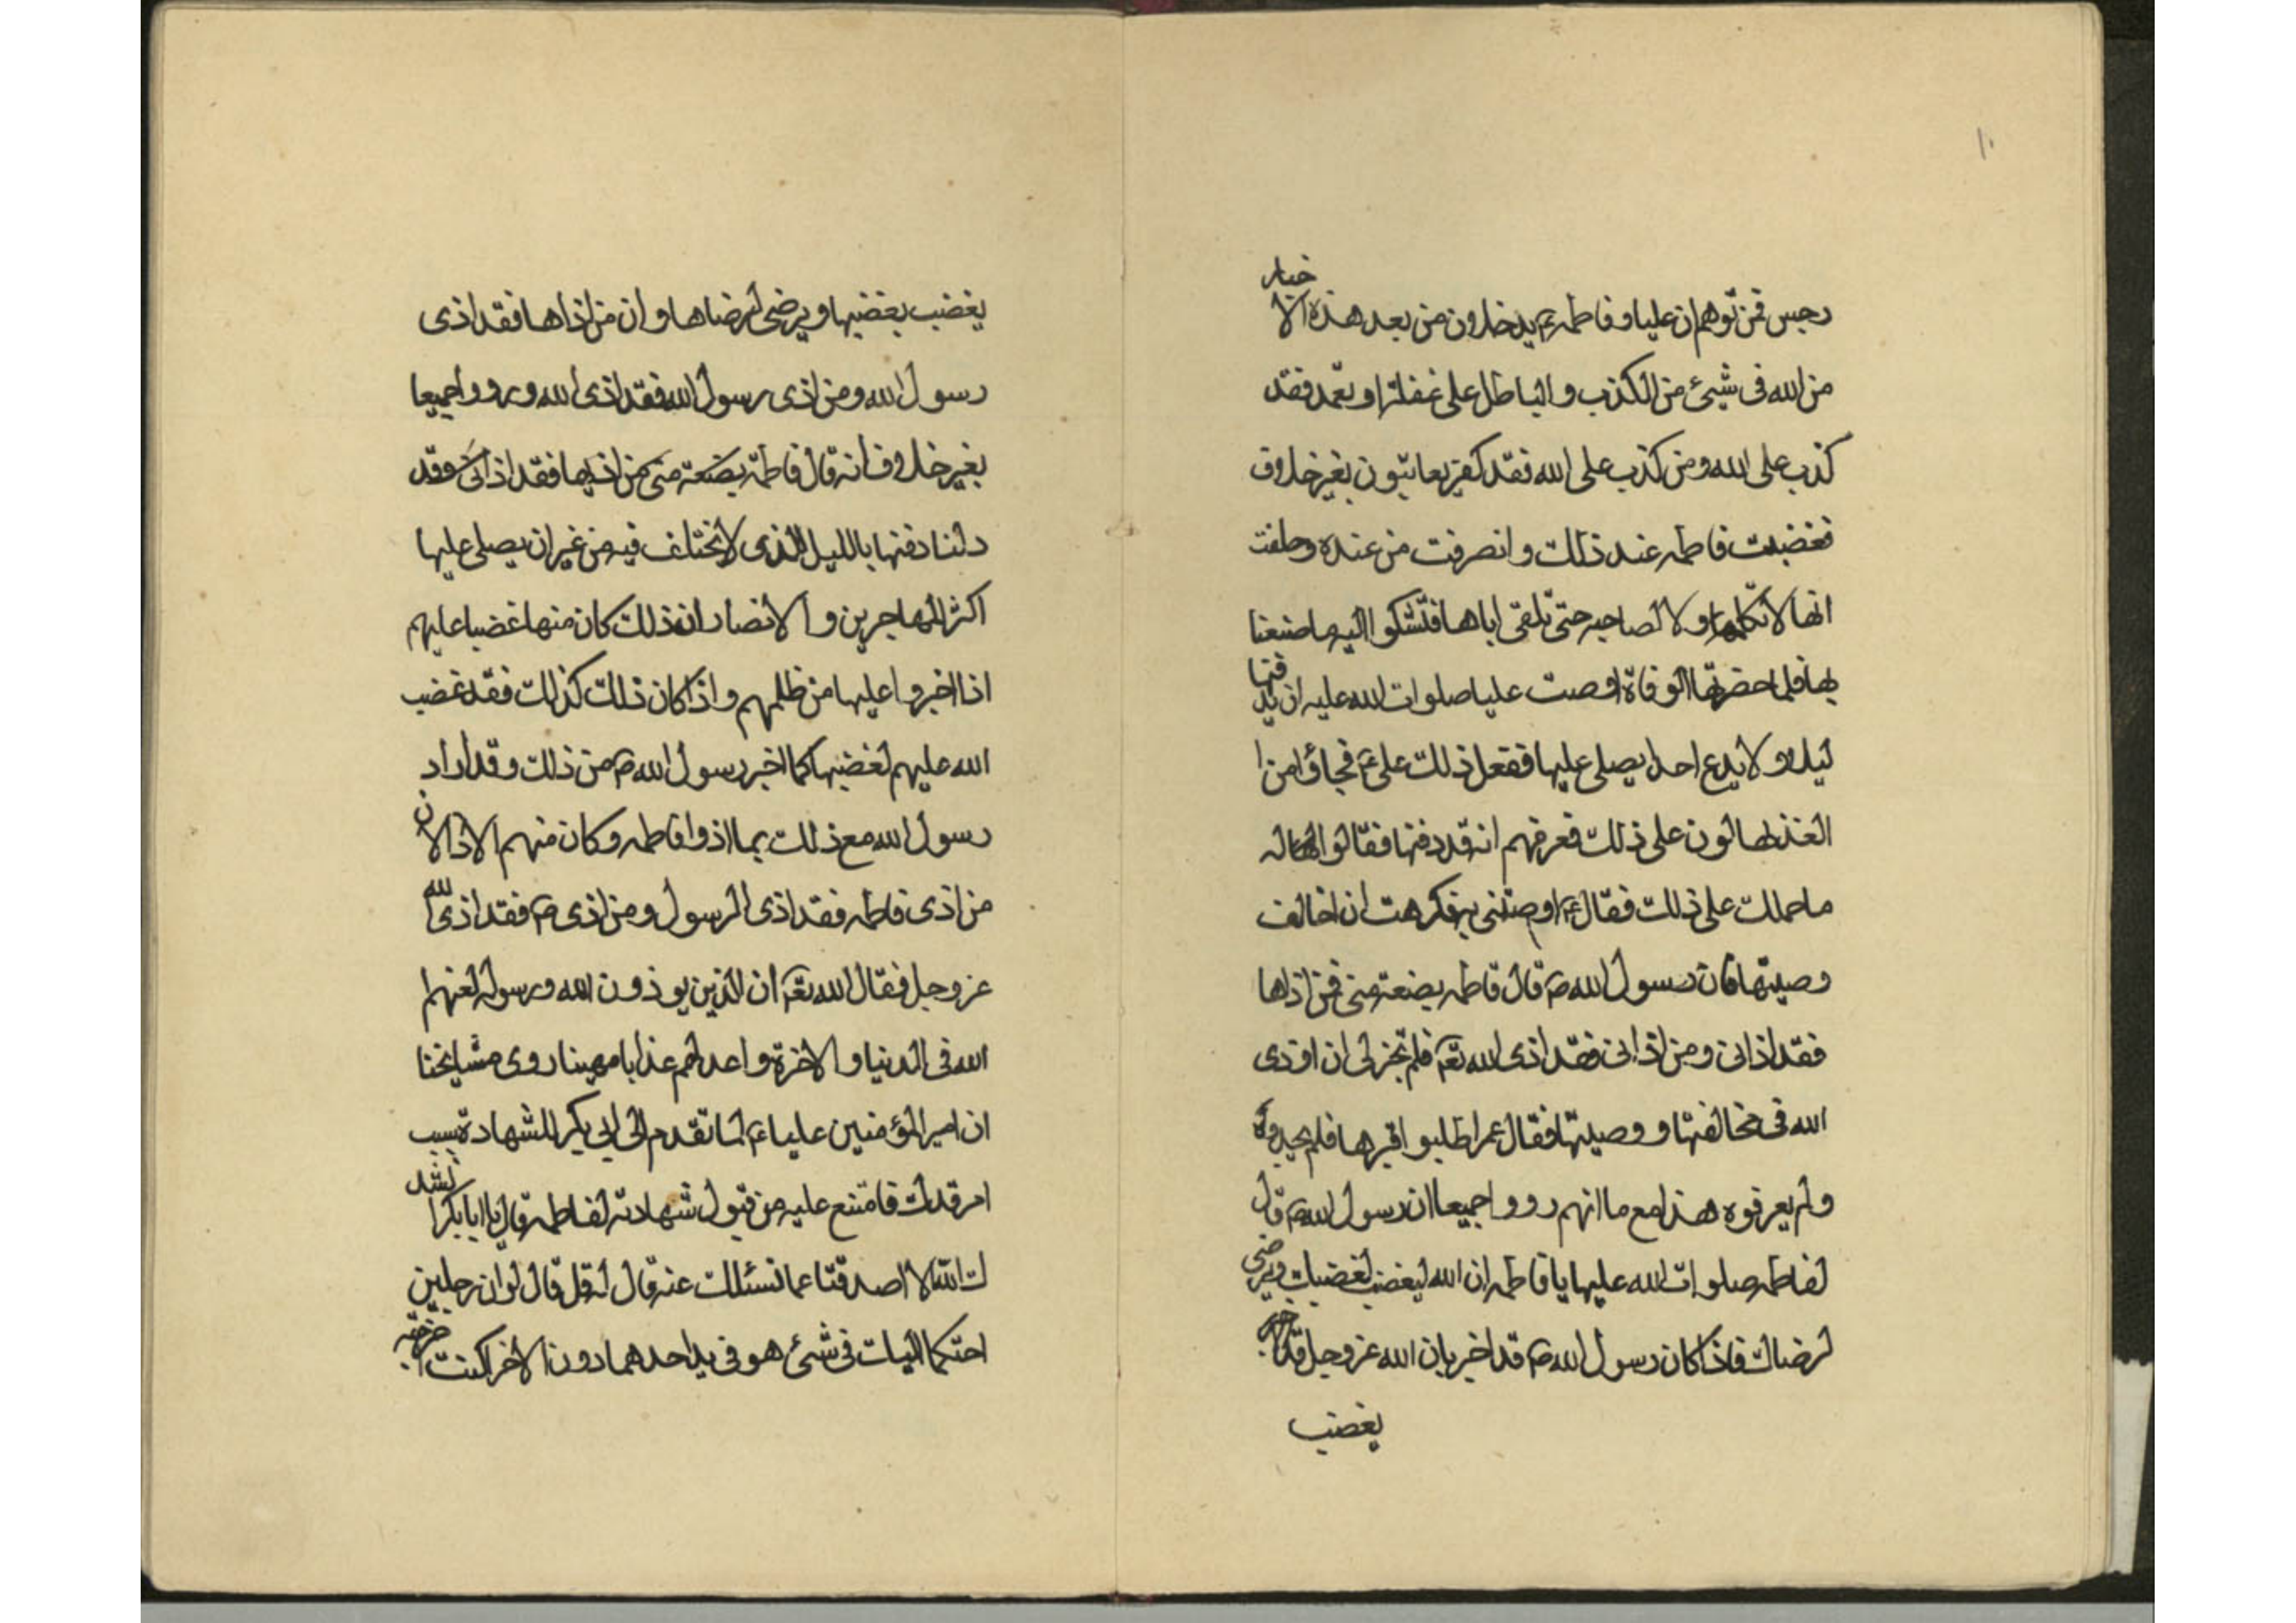 ١٠
رجس فمن توهم ان عليا وفاطمة ع يدخلون من بعد هذه الاخبار
من الله فى شيئ من الكذب والباطل على غفلة او تعمد فقد
كذب على الله ومن كذب على الله فقد كفر بغير خلاف
فغضبت فاطمه عند ذلك وانصرفت من عنده وحلفت
انها لا تكلمه ولا لصاحبه حتى تلقى اباها فتشكوا اليه ما صنعنا
بها فلما حضرتها الوفاة اوصت عليا صلوات الله عليه ان يدفنها
ليلا ولا يدع احدا يصلى عليها ففعل ذلك على ع فجاؤا من ا
لغد يسالون على ذلك فعرفهم انه قد دفنها فقالوا له
ما حملك على ذلك فقال ع اوصتنى به فكرهت ان اخالف
وصيتها فان رسول الله ص قال فاطمه بضعة منى فمن اذاها
فقد اذانى ومن اذانى فقد اذى الله تع فلم يجز لى ان اوذى
الله فى مخالفتها ووصيتها فقال عمر اطلبوا قبرها فلم يجدوه
ولم يعرفوه هذا مع ما انهم رووا جميعا ان رسول الله ص قال
لفاطمه صلوات الله عليها يا فاطمه ان الله ليغضب لغضبك ويرضى
لرضاك فاذا كان رسول الله ص قد اخبر بان الله عز وجل قد اخبر
يغضب
يغضب بغضبها ويرضى لرضاها وان من اذاها فقد اذى
رسول الله ومن اذى رسول الله فقد اذى الله ورووا جميعا
بغير خلاف انه قال فاطمة بضعة منى من اذاها فقد اذانى وقد
دلنا دفنها بالليل الذى لا نختلف فيه من غير ان يصلى عليها
اكثر المهاجرين والانصار ان ذلك كان منها غضبا عليهم
اذا اخبروا عليها من ظلمهم واذا كان ذلك كذلك فقد غضب
الله عليهم لغضبها كما اخبر رسول الله ص من ذلك وقد اراد
رسول الله مع ذلك بما اذوا فاطمه وكان منهم الاذا لان
من اذى فاطمه فقد اذى الرسول ومن اذى ص فقد اذى الله
عز وجل فقال الله تع ان الذين يوذون الله ورسوله لعنهم
الله فى الدنيا والاخرة واعد لهم عذابا مهينا روى مشايخنا
ان امير المؤمنين عليا ع لما تقدم الى ابى بكر للشهادة بسبب
امر فدك فامتنع عليه من قبول شهادته لفاطمه قال يا ابا بكر انشد
ك الله الا اصدقتنا عما نسئلك عنه قال له قل قال لو ان رجلين
احتكما اليك فى شئ هو فى يد احدهما دون الاخر اكنت